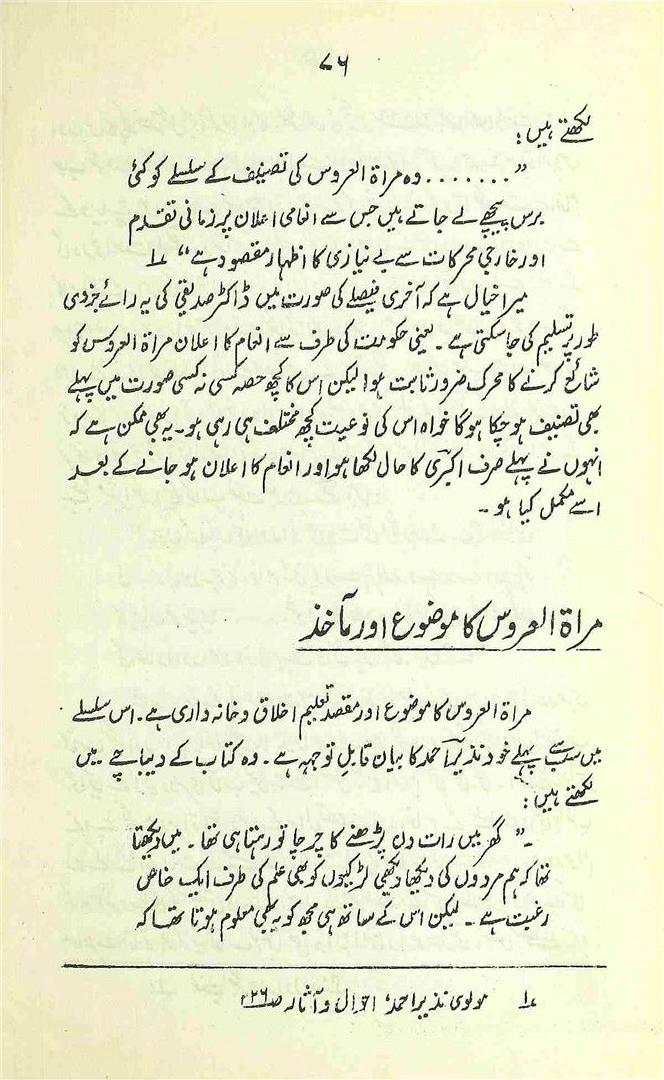 ۷۶
لکھتے ہیں:
”........ وہ مراۃ العروس کی تصنیف کے سلسلے کو کئی
برس پیچھے لے جاتے ہیں جس سے انعامی اعلان پر زمانی تقدم
اور خارجی محرکات سے بے نیازی کا اظہار مقصود ہے“ ۱؎
میرا خیال ہے کہ آخری فیصلے کی صورت میں ڈاکٹر صدیقی کی یہ رائے جزوی
طور پر تسلیم کی جا سکتی ہے۔ یعنی حکومت کی طرف سے انعام کا اعلان مراۃ العروس کو
شائع کرنے کا محرک ضرور ثابت ہوا لیکن اس کا کچھ حصہ کسی نہ کسی صورت میں پہلے
بھی تصنیف ہو چکا ہوگا خواہ اس کی نوعیت کچھ مختلف ہی رہی ہو۔ یہ بھی ممکن ہے کہ
انہوں نے پہلے صرف اکبری کا حال لکھا ہو اور انعام کا اعلان ہو جانے کے بعد
اسے مکمل کیا ہو۔
مراۃ العروس کا موضوع اور مآخذ
مراۃ العروس کا موضوع اور مقصد تعلیم اخلاق و خانہ داری ہے۔ اس سلسلے
میں سب سے پہلے خود نذیر احمد کا بیان قابلِ توجہہ ہے۔ وہ کتاب کے دیباچے میں
لکھتے ہیں:
۔” گھر میں رات دن پڑھنے کا چرچا تو رہتا ہی تھا۔ میں دیکھتا
تھا کہ ہم مردوں کی دیکھا دیکھی لڑکیوں کو بھی علم کی طرف ایک خاص
رغبت ہے۔ لیکن اس کے ساتھ ہی مجھ کو یہ بھی معلوم ہوتا تھا کہ
۱؎ مولوی نذیر احمد، احوال و آثار ص ۳۲۶